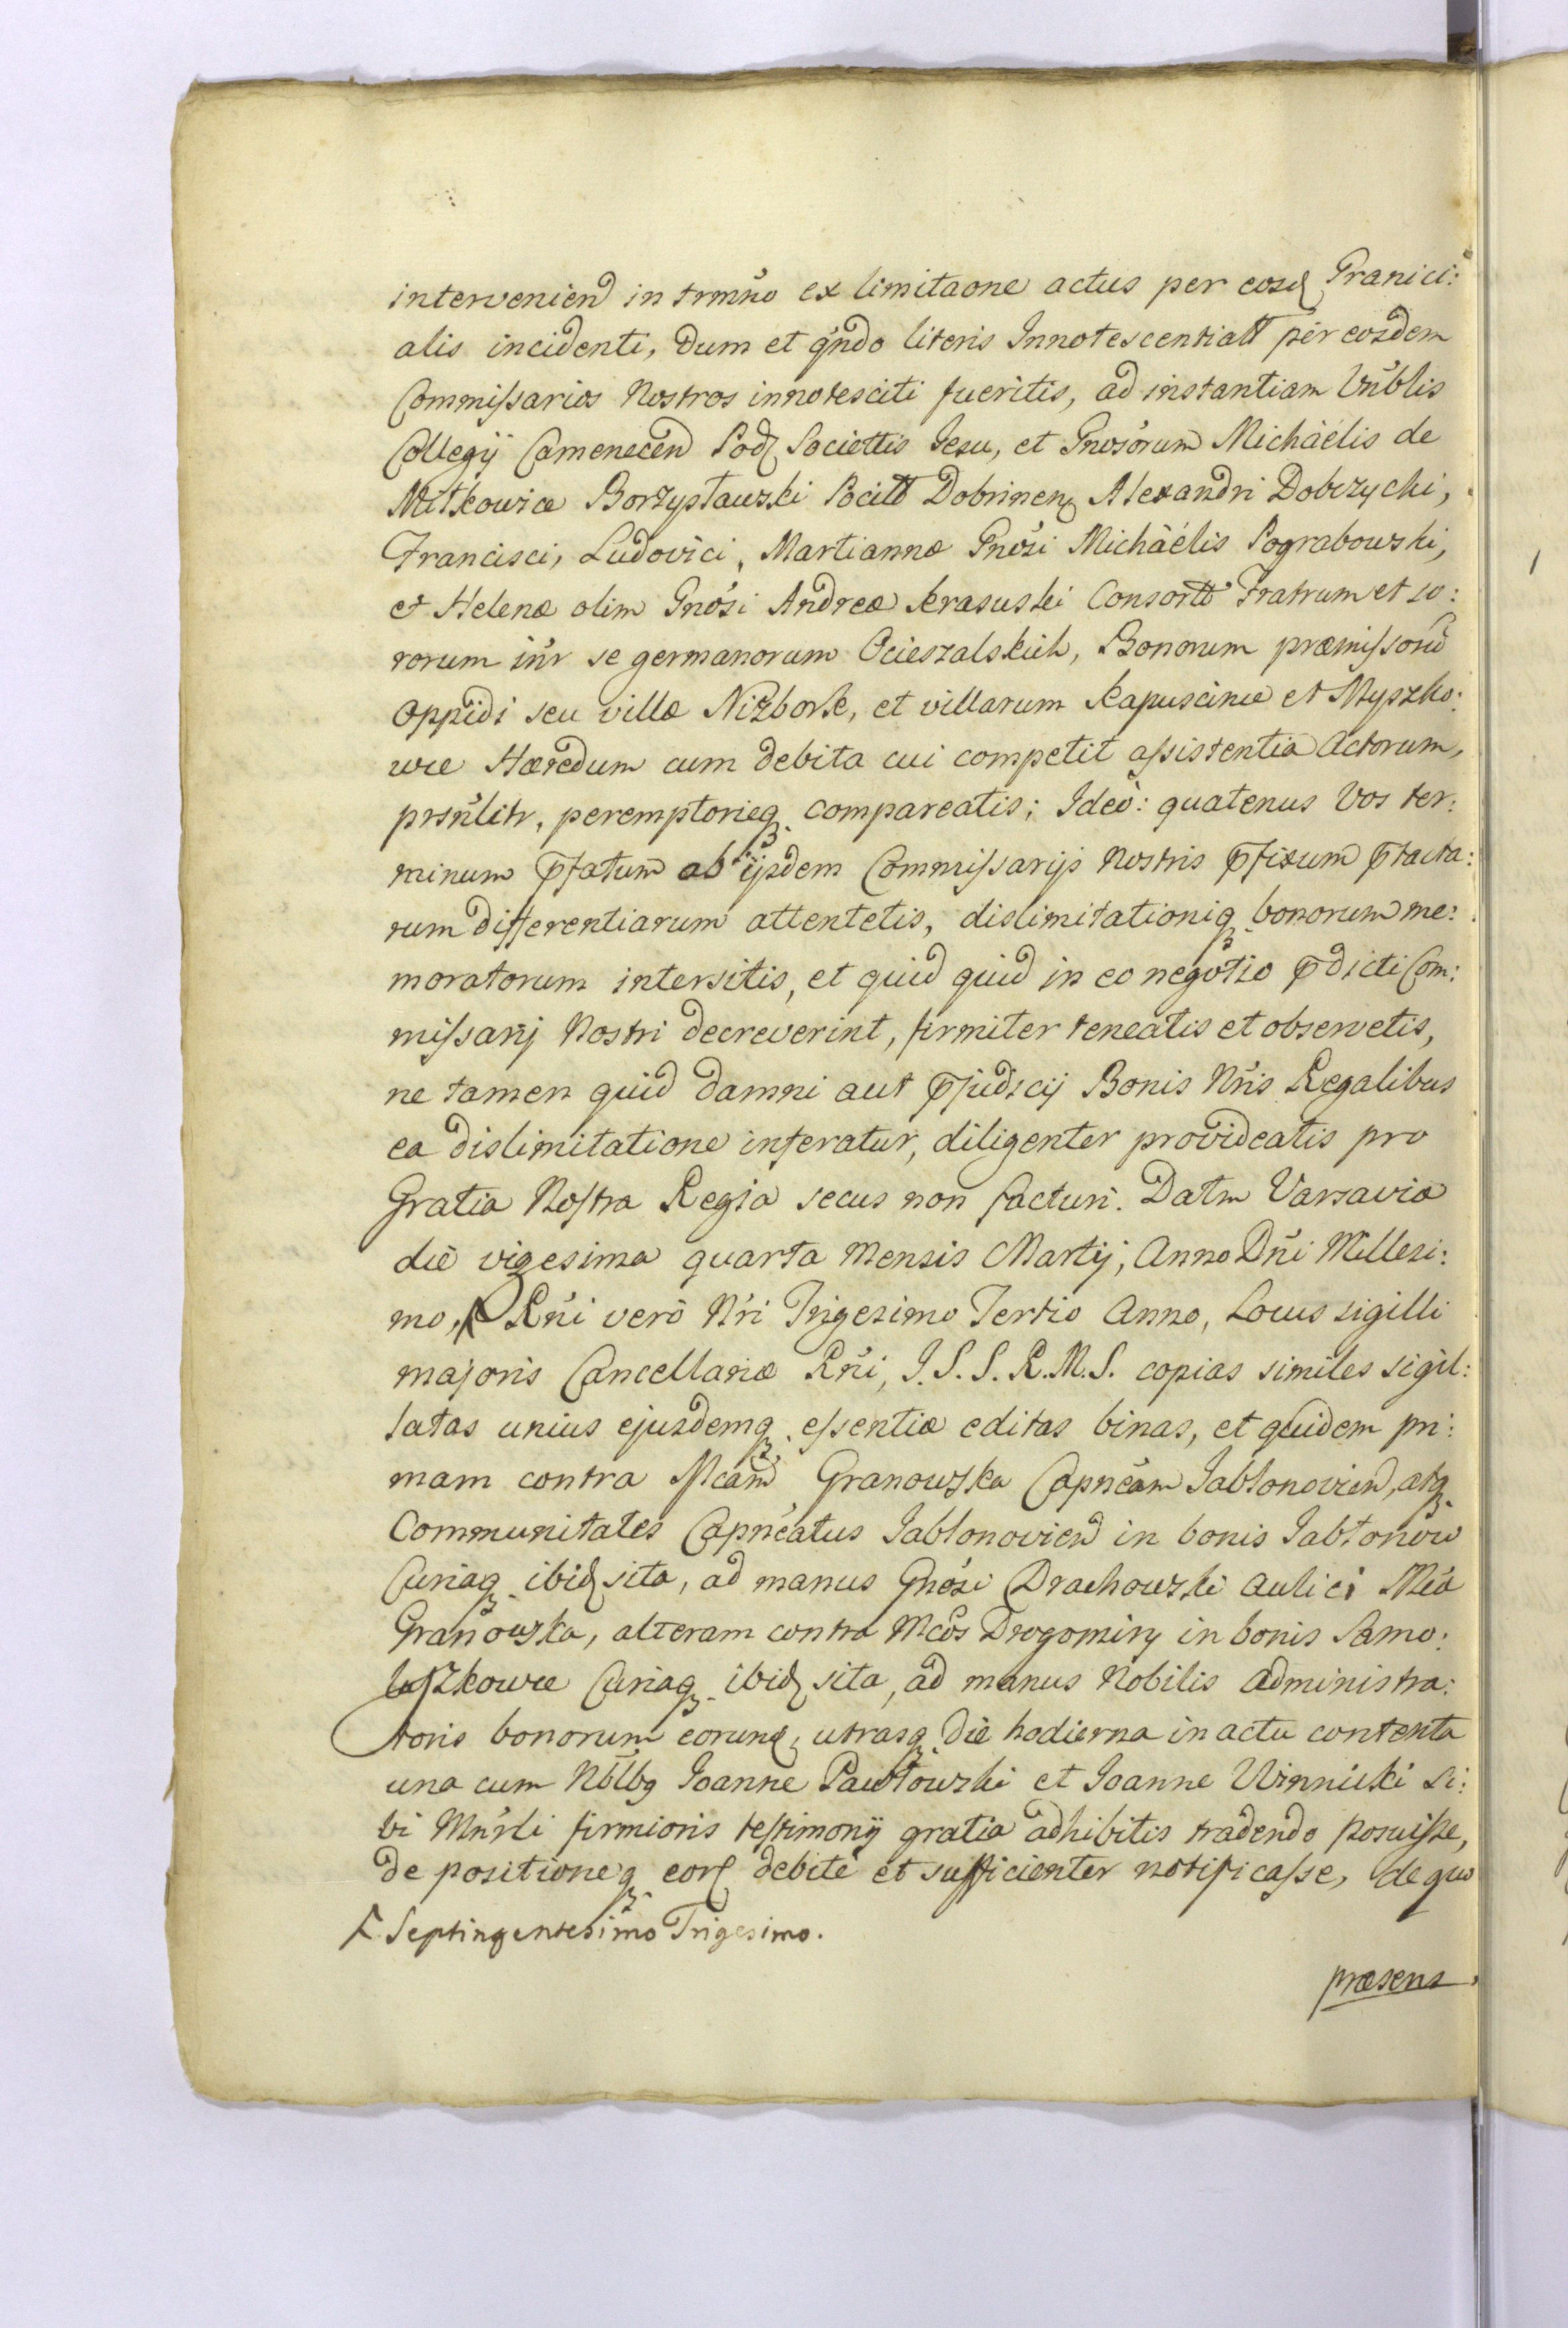 intervenien̄ in trmńo ex limitaone actus per eosd Granici:
alis incidenti, dum et qńdo literis Innotescentialł per eosdem
Commissarios Nostros innotesciti fueritis, ad instantiam Vnblis
Collegij Camenecen̄ Pod Societtis Jesu, et Gnosorum Michaelis de
Mitkowice Borzysławski Pocill Dobrinen Alexandri Dobrzycki,
Francisci, Ludovici, Martiannæ Gnosi Michaelis Pograbowski,
et Helenæ olim Gnosi Andreæ Krasuski Consortt Fratrum et so:
rorum inr se germanorum Ocieszalskich, Bonorum præmissorū
Oppidi seu villæ Niżbork, et villarum Kapuscince et Myszko:
wce Hæredum cum debita cui competit assistentia Actorum,
prsnlitr, peremptorieq compareatis; Ideo: quatenus Vos ter:
minum p̄fatum ab ijsdem Commissarijs Nostris p̄fixum p̄tacta:
rum differentiarum attentetis, dislimitationiq bonorum me:
moratorum intersitis, et quid quid in eo negotio p̄dicti Com:
missarij Nostri decreverint, firmiter teneatis et observetis,
ne tamen quid damni aut p̄judicij Bonis Nris Regalibus
ea dislimitatione inferatur, diligenter provideatis pro
Gratia Nostra Regia secus non facturi. Datm Varsaviæ
die vigesima quarta Mensis Martij, Anno Dni Millesi:
mo, Rni vero Nri Trigesimo Tertio Anno, Locus sigilli
majoris Cancellariæ Rni, I.S.S.R.M.S. copias similes sigil:
latas unius ejusdemq essentiæ editas binas, et quidem pri:
mam contra Mcam Granowska Capneam Jabłonovien̄, atq
Communitates Capneatus Jablonovien̄ in bonis Jabłonow
Curiaq ibid sita, ad manus Gnosi Drachowski aulici Mcæ
Granowska, alteram contra Mcos Drogomiry in bonis Samo:
luszkowce Curiaq ibid sita, ad manus Nobilis Administra:
toris bonorum eorund, utrasq die hodierna in actu contenta
una cum Nblbq Joanne Pawłowski et Joanne Winnicki si:
bi Mnrli firmioris testimonij gratia adhibitis tradendo posuisse,
de positioneq eor debite et sufficienter notificasse, de quo
Septingentesimo Trigesimo.
præsens